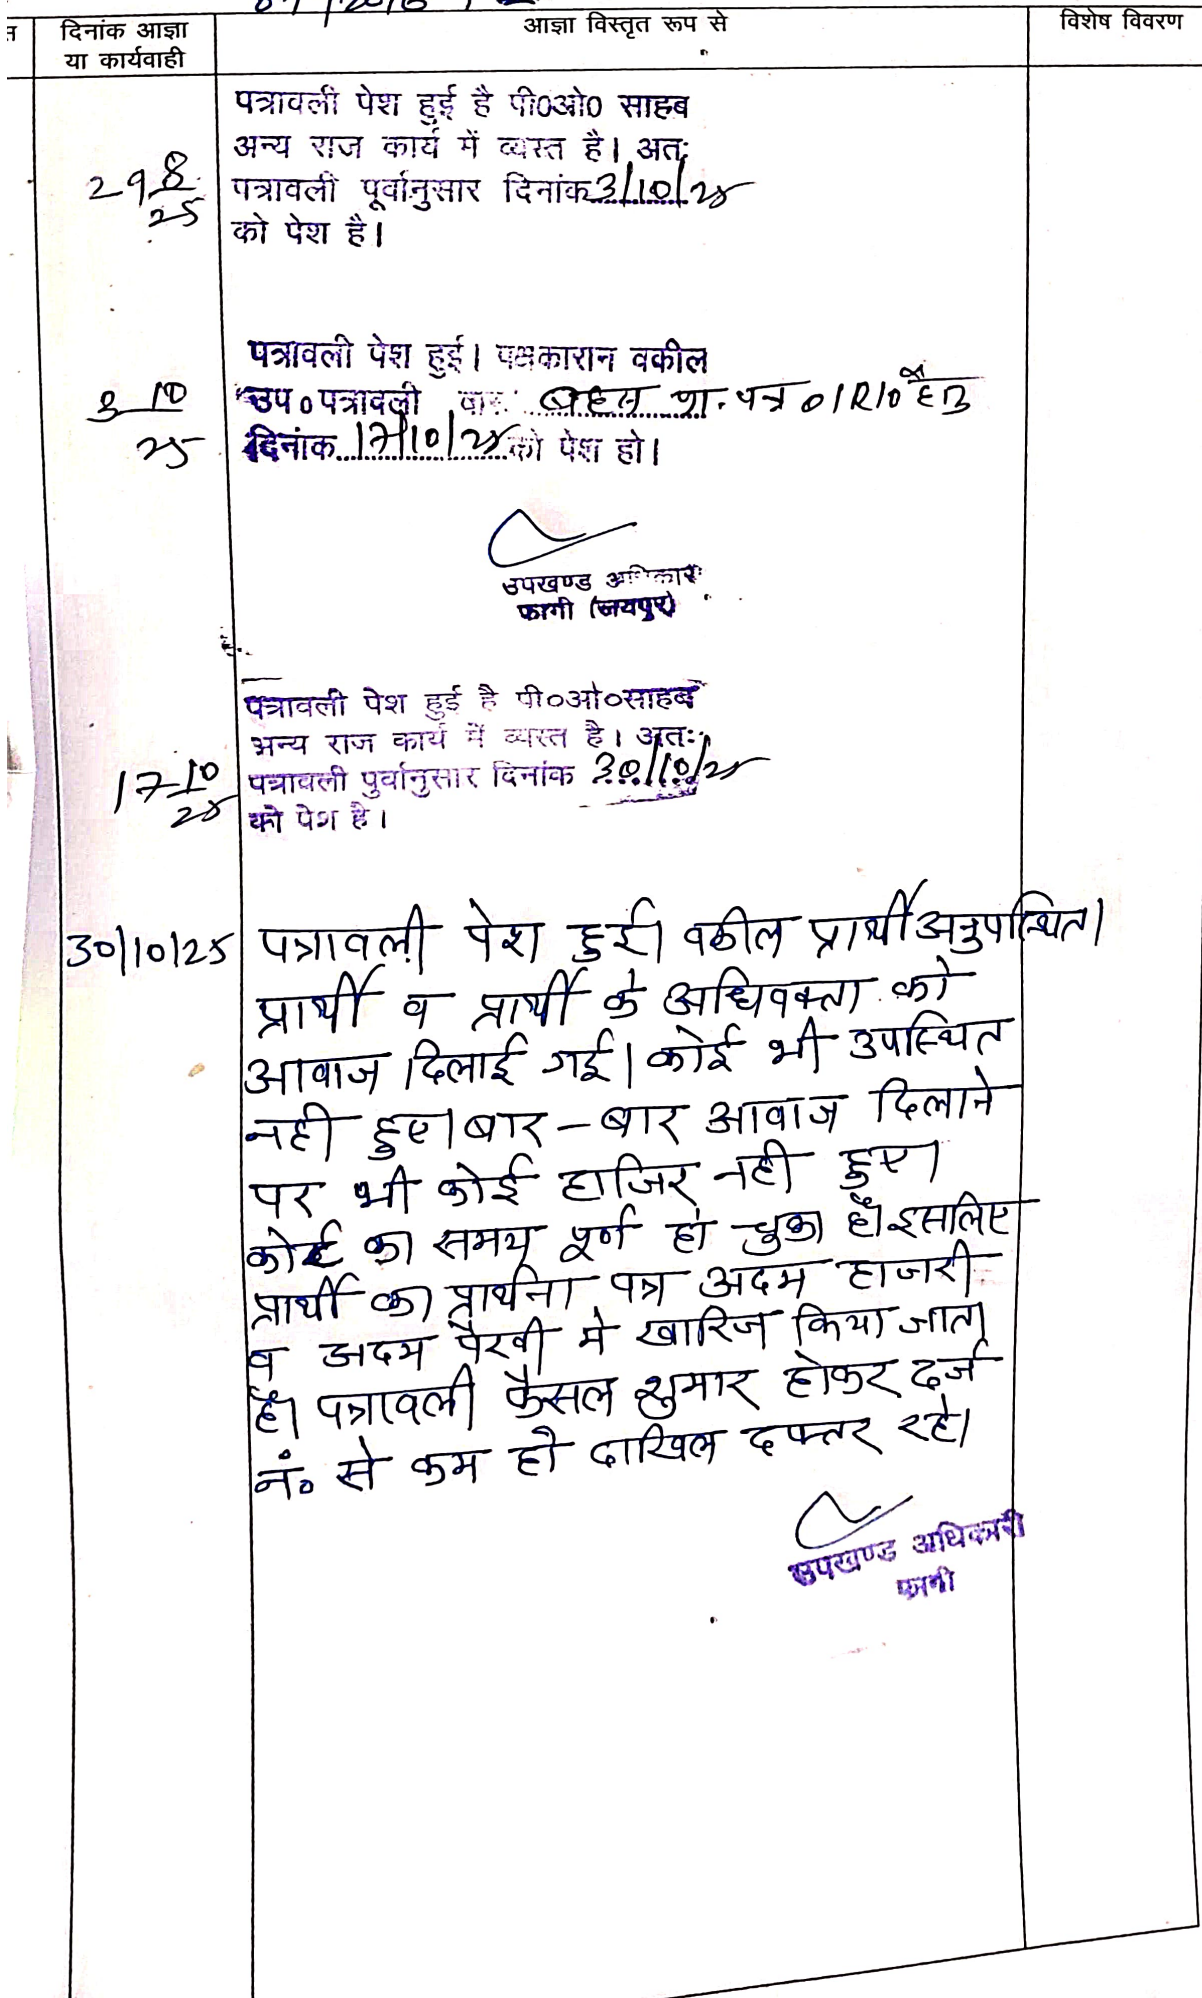 दिनांक आज्ञा
या कार्यवाही
आज्ञा विस्तृत रूप से
विशेष विवरण
पत्रावली पेश हुई है पी०ओ० साहब
अन्य राज कार्य में व्यस्त है। अतः
29 8/25 पत्रावली पूर्वानुसार दिनांक 3/10/25
को पेश है।
पत्रावली पेश हुई। पक्षकारान वकील
3 10/25 उप० पत्रावली वास्ते बहस प्रा. पत्र
दिनांक 17/10/25 को पेश हो।
उपखण्ड अधिकारी
फागी (जयपुर)
पत्रावली पेश हुई है पी०ओ०साहब
अन्य राज कार्य में व्यस्त है। अतः
17 10/25 पत्रावली पुर्वानुसार दिनांक 30/10/25
को पेश है।
30/10/25 पत्रावली पेश हुई। वकील प्रार्थी अनुपस्थित।
प्रार्थी व प्रार्थी के अधिवक्ता को
आवाज दिलाई गई। कोई भी उपस्थित
नही हुए। बार-बार आवाज दिलाने
पर भी कोई हाजिर नही हुए।
कोर्ट का समय पूर्ण हो चुका है। इसलिए
प्रार्थी का प्रार्थना पत्र अदम हाजरी
व अदम पैरवी मे खारिज किया जाता
है। पत्रावली फैसल शुमार होकर दर्ज
नं० से कम हो दाखिल दफ्तर रहे।
उपखण्ड अधिकारी
फागी